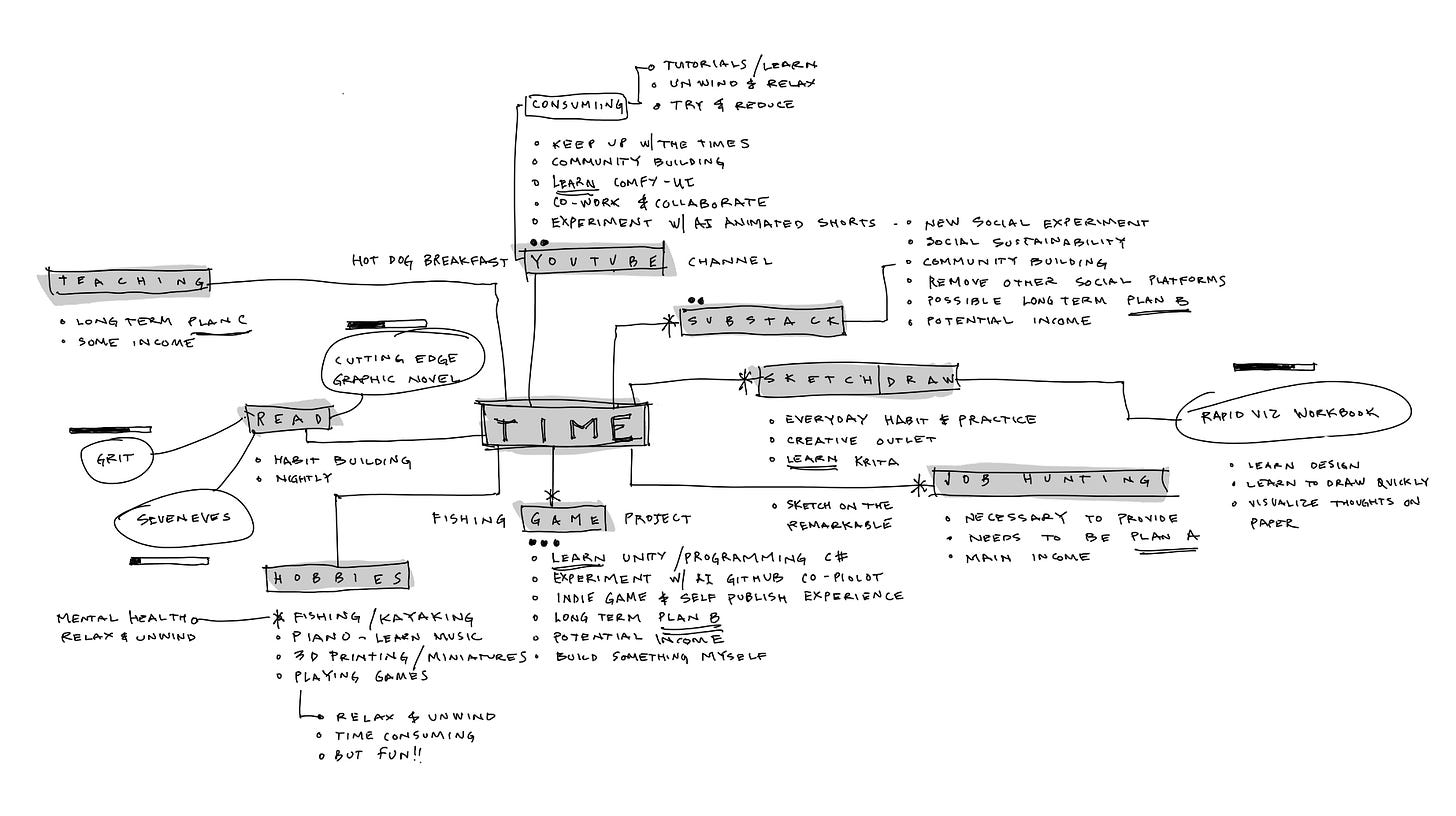 TUTORIALS / LEARN
UNWIND & RELAX
TRY & REDUCE
CONSUMIING
KEEP UP W/ THE TIMES
COMMUNITY BUILDING
LEARN COMFY-UI
CO-WORK & COLLABORATE
EXPERIMENT W/ AI ANIMATED SHORTS
HOT DOG BREAKFAST YOUTUBE CHANNEL
NEW SOCIAL EXPERIMENT
SOCIAL SUSTAINABILITY
COMMUNITY BUILDING
REMOVE OTHER SOCIAL PLATFORMS
POSSIBLE LONG TERM PLAN B
POTENTIAL INCOME
SUBSTACK
TEACHING
LONG TERM PLAN C
SOME INCOME
CUTTING EDGE
GRAPHIC NOVEL
READ
GRIT
HABIT BUILDING
NIGHTLY
SEVENEVES
TIME
SKETCH DRAW
EVERYDAY HABIT & PRACTICE
CREATIVE OUTLET
LEARN KRITA
SKETCH ON THE
REMARKABLE
RAPID VIZ WORKBOOK
LEARN DESIGN
LEARN TO DRAW QUICKLY
VISUALIZE THOUGHTS ON
PAPER
JOB HUNTING
NECESSARY TO PROVIDE
NEEDS TO BE PLAN A
MAIN INCOME
FISHING GAME PROJECT
LEARN UNITY / PROGRAMMING C#
EXPERIMENT W/ AI GITHUB CO-PIOLOT
INDIE GAME & SELF PUBLISH EXPERIENCE
LONG TERM PLAN B
POTENTIAL INCOME
BUILD SOMETHING MYSELF
HOBBIES
MENTAL HEALTH
RELAX & UNWIND
FISHING / KAYAKING
PIANO - LEARN MUSIC
3D PRINTING / MINIATURES
PLAYING GAMES
RELAX & UNWIND
TIME CONSUMING
BUT FUN!!